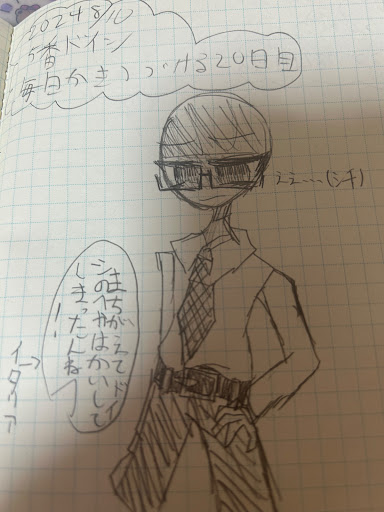 2024 8/10
5番ドイツ
毎日かきつづける20日目
ええ....
まちがえてドイ
ツのへやはかいして
しまったんね!
イタリア